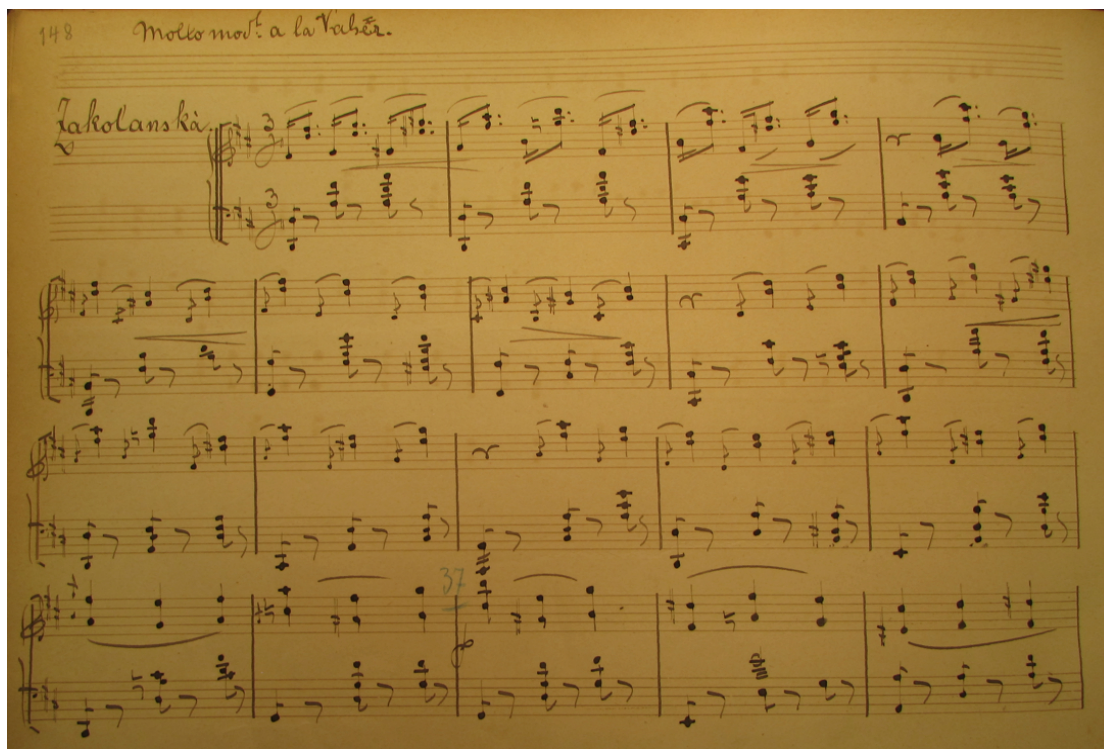 148 Molto mod.t a la Valser.
Zakolanská
3
3
37